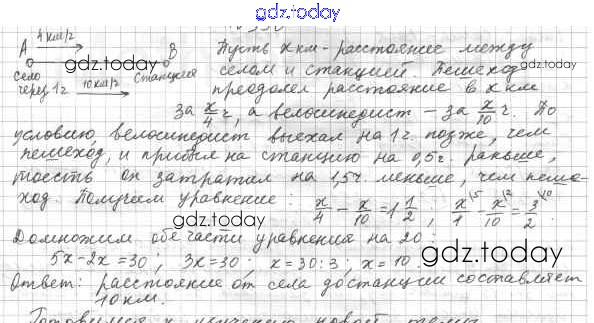 gdz.today
A 4 км/ч gdz.today B Пусть x км - расстояние между
село станция селом и станцией. Пешеход
через 1 ч 10 км/ч преодолел расстояние в x км
за x/4 ч, а велосипедист - за x/10 ч. По
условию, велосипедист выехал на 1 ч. позже, чем
пешеход, и прибыл на станцию на 0,5 ч. раньше,
тоесть он затратил на 1,5 ч. меньше, чем пеше-
ход. Получим уравнение: x/4 - x/10 = 1 1/2, x/4 \5 - x/10 \2 = 3/2 \10.
gdz.today
Домножим обе части уравнения на 20:
5x - 2x = 30; 3x = 30; x = 30 : 3; x = 10. gdz.today
Ответ: расстояние от села до станции составляет
10 км.